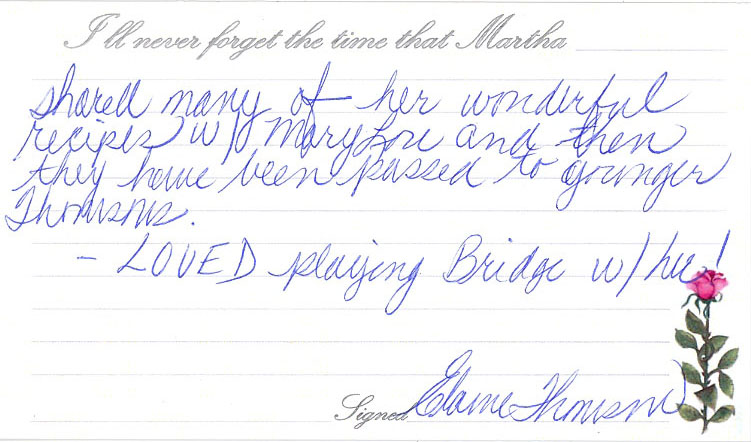 I'll never forget the time that Martha
shared many of her wonderful
recipes w/ MaryLou and then
they have been passed to younger
Thomsons.
- LOVED playing Bridge w/ her!
Signed Elaine Thomson